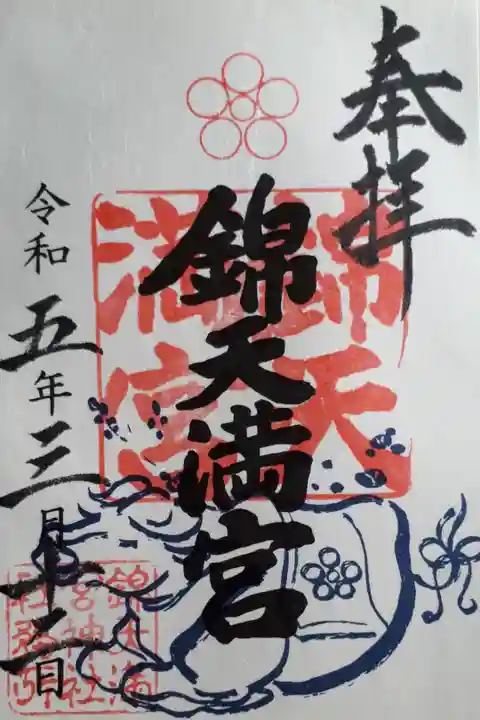 奉拝
錦天
満宮
錦天満宮
令和五年三月十三日
錦天満
宮神社
社務所